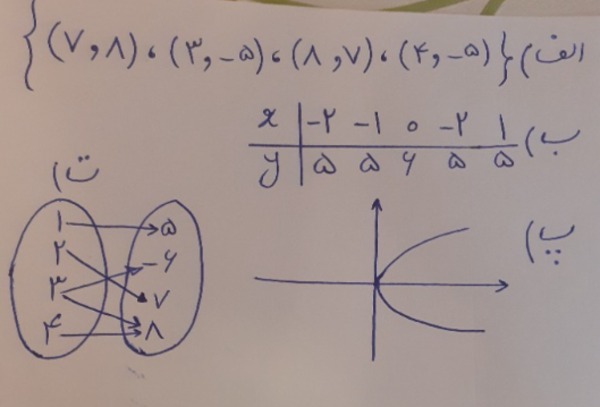 الف) {(۷,۸)، (۳,-۵)، (۸,۷)، (۴,-۵)}
ب)
x | -۲ -۱ ۰ -۲ ۱
y | ۵ ۵ ۶ ۵ ۵
پ)
ت)
۱ ۵
۲ -۶
۳ ۷
۴ ۸